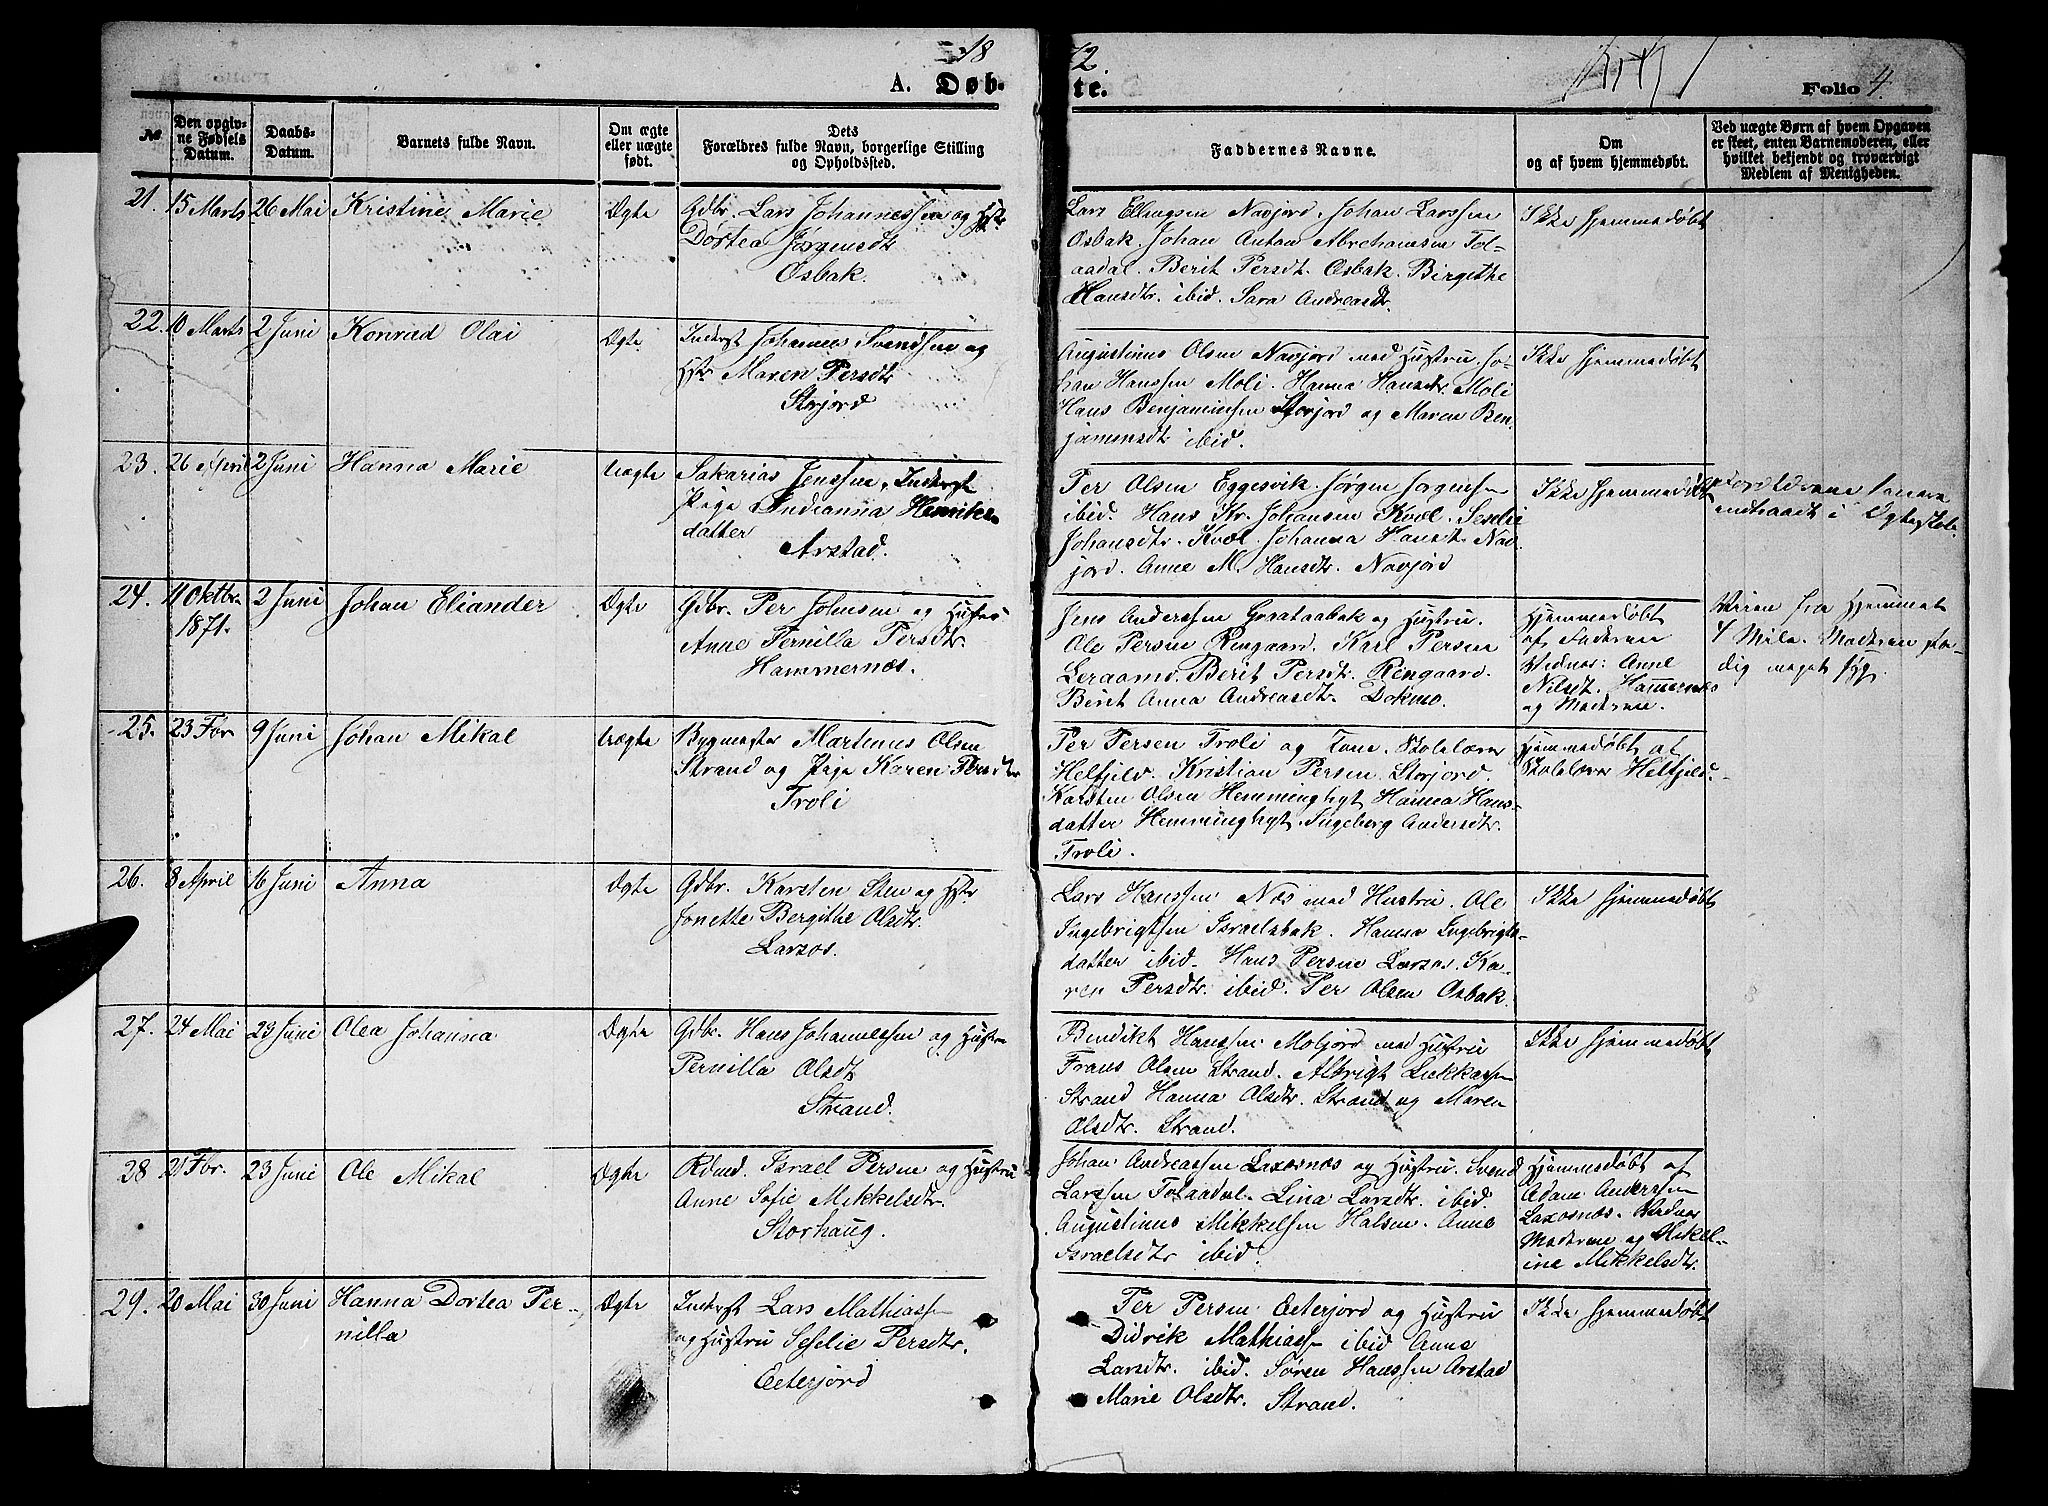 18
72.
A. Døb-
te.
Folio 4.
№
Den opgiv-
ne Fødsels
Datum.
Daabs-
Datum.
Barnets fulde Navn.
Om ægte
eller uægte
født.
Dets
Forældres fulde Navn, borgerlige Stilling
og Opholdssted.
Faddernes Navne.
Om
og af hvem hjemmedøbt.
Ved uægte Børn af hvem Opgaven
er skeet, enten Barnemoderen, eller
hvilket bekjendt og troværdigt
Medlem af Menigheden.
21. 15 Marts 26 Mai Kristine Marie Ægte Gdbr. Lars Johannessen og Hst.
Dørtea Jørgensdt
Osbak.
Lars Ellingsen Navjord. Johan Larssen
Osbak. Johan Antan Abrehamsen Tol-
aadal. Berit Persdt. Osbak. Birgithe
Hansdtr. ibid. Sara Andreasdt.
Ikke hjemmedøbt
22. 10 Marts 2 Juni Konrad Olai Ægte Inderst Johannes Svendsen og
Hstr Maren Persdtr
Storjord
Augustinus Olsen Navjord med Hustru. Jo-
han Hanssen Moli. Hanna Hansdtr. Moli
Hans Benjaminsen Storjord og Maren Ben
jaminsdt. ibid.
Ikke hjemmedøbt
23. 26 April 2 Juni Hanna Marie Uægte Sakarias Jenssen, Inderst
Pige Indianna Henrike-
datter
Arstad.
Per Olsen Eggesvik. Jørgen Jørgensen
ibid. Hans Kr. Johansen Kvæl. Seselie
Johansdtr. Kvæl. Johanna Hansdt. Nav
jord. Anne M. Hansdtr. Navjord
Ikke hjemmedøbt
Forældrene senere
indtraadt i Ægtestab.
24. 11 Oktbr. 2 Juni Johan Eliander Ægte Gdbr. Per Johnsen og Hustru
1871.
Anne Pernilla Persdtr.
Hammernæs.
Jens Anderssen Graataabak og Hustru.
Ole Persen Ringaard. Karl Persen
Leraamo. Berit Persdt. Ringaard.
Berit Anna Andreasdtr. Dokmo.
Hjemmedøbt
af Faderen
Vidnes: Anne
Nilsdt. Hamernæs
og Moderen.
Veien fra Hjemmet
4 Mile. Moderen sta-
dig meget syg.
25. 23 Febr 9 Juni Johan Mikal Uægte Bygmester Martinus Olsen
Strand og Pige Karen Persdtr
Troli
Per Persen Troli og Kone. Skolelærer
Helfjeld. Kristian Persen. Storjord.
Karsten Olsen Hemminghyt Hanna Hans-
datter Hemminghyt. Ingeborg Andersdtr.
Troli.
Hjemmedøbt af
Skolelærer Helfjeld.
26. 8 April 16 Juni Anna Ægte Gdbr. Karsten Sten og Hstr
Jonette Bergithe Olsdtr.
Larsos.
Lars Hanssen Næs med Hustru. Ole
Ingebrigtsen Israelsbak. Hanna Ingebrigts-
datter ibid. Hans Persen Larsos. Ka-
ren Persdtr. ibid. Per Olsen Osbak.
Ikke hjemmedøbt
27. 24 Mai 23 Juni Olea Johanna Ægte Gdbr. Hans Johannessen og Hustru
Pernilla Olsdt
Strand.
Bendikt Hanssen Moljord med Hustru
Frans Olsen Strand. Albrigt Lukkassen
Strand Hanna Olsdtr. Strand og Maren
Olsdtr. Strand.
Ikke hjemmedøbt
28 21 Fbr. 23 Juni Ole Mikal Ægte Rdmd. Israel Persen og Hustru
Anne Sofie Mikkelsdtr.
Storhaug.
Johan Andreassen Laxosnæs og Hustru. Svend
Larssen Tolaadal. Lina Larsdtr. ibid.
Augustinus Mikkelsen Halsen. Anne
Israelsdtr ibid.
Hjemmedøbt af
Adam Anderssen
Laxosnæs. Vidner
Moderen og Mikel-
ine Mikkelsdtr.
29. 20 Mai 30 Juni Hanna Dortea Per- Ægte Inderst Lars Mathiassen
nilla
og Hustru Seselie Persdtr.
Eeterjord
Per Persen Eeterjord og Hustru
Didrik Mathiassen ibid Anne
Larsdtr. ibid. Søren Hanssen Arstad
Marie Olsdtr. Strand.
Ikke hjemmedøbt